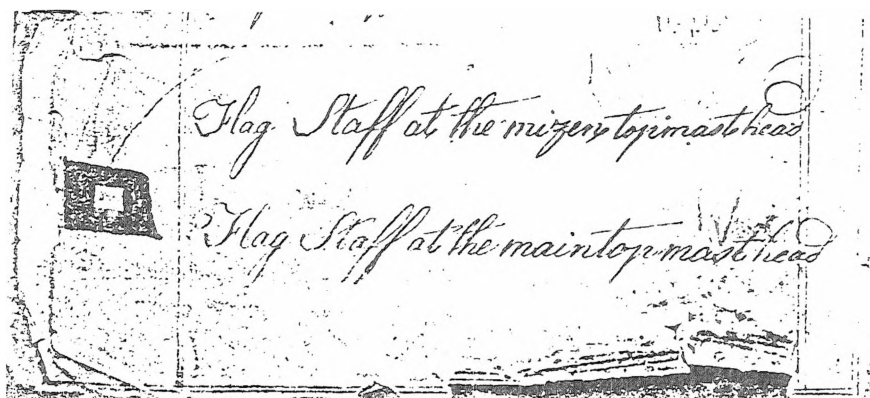 Flag Staff at the mizen topmast head
Flag Staff at the main top mast head